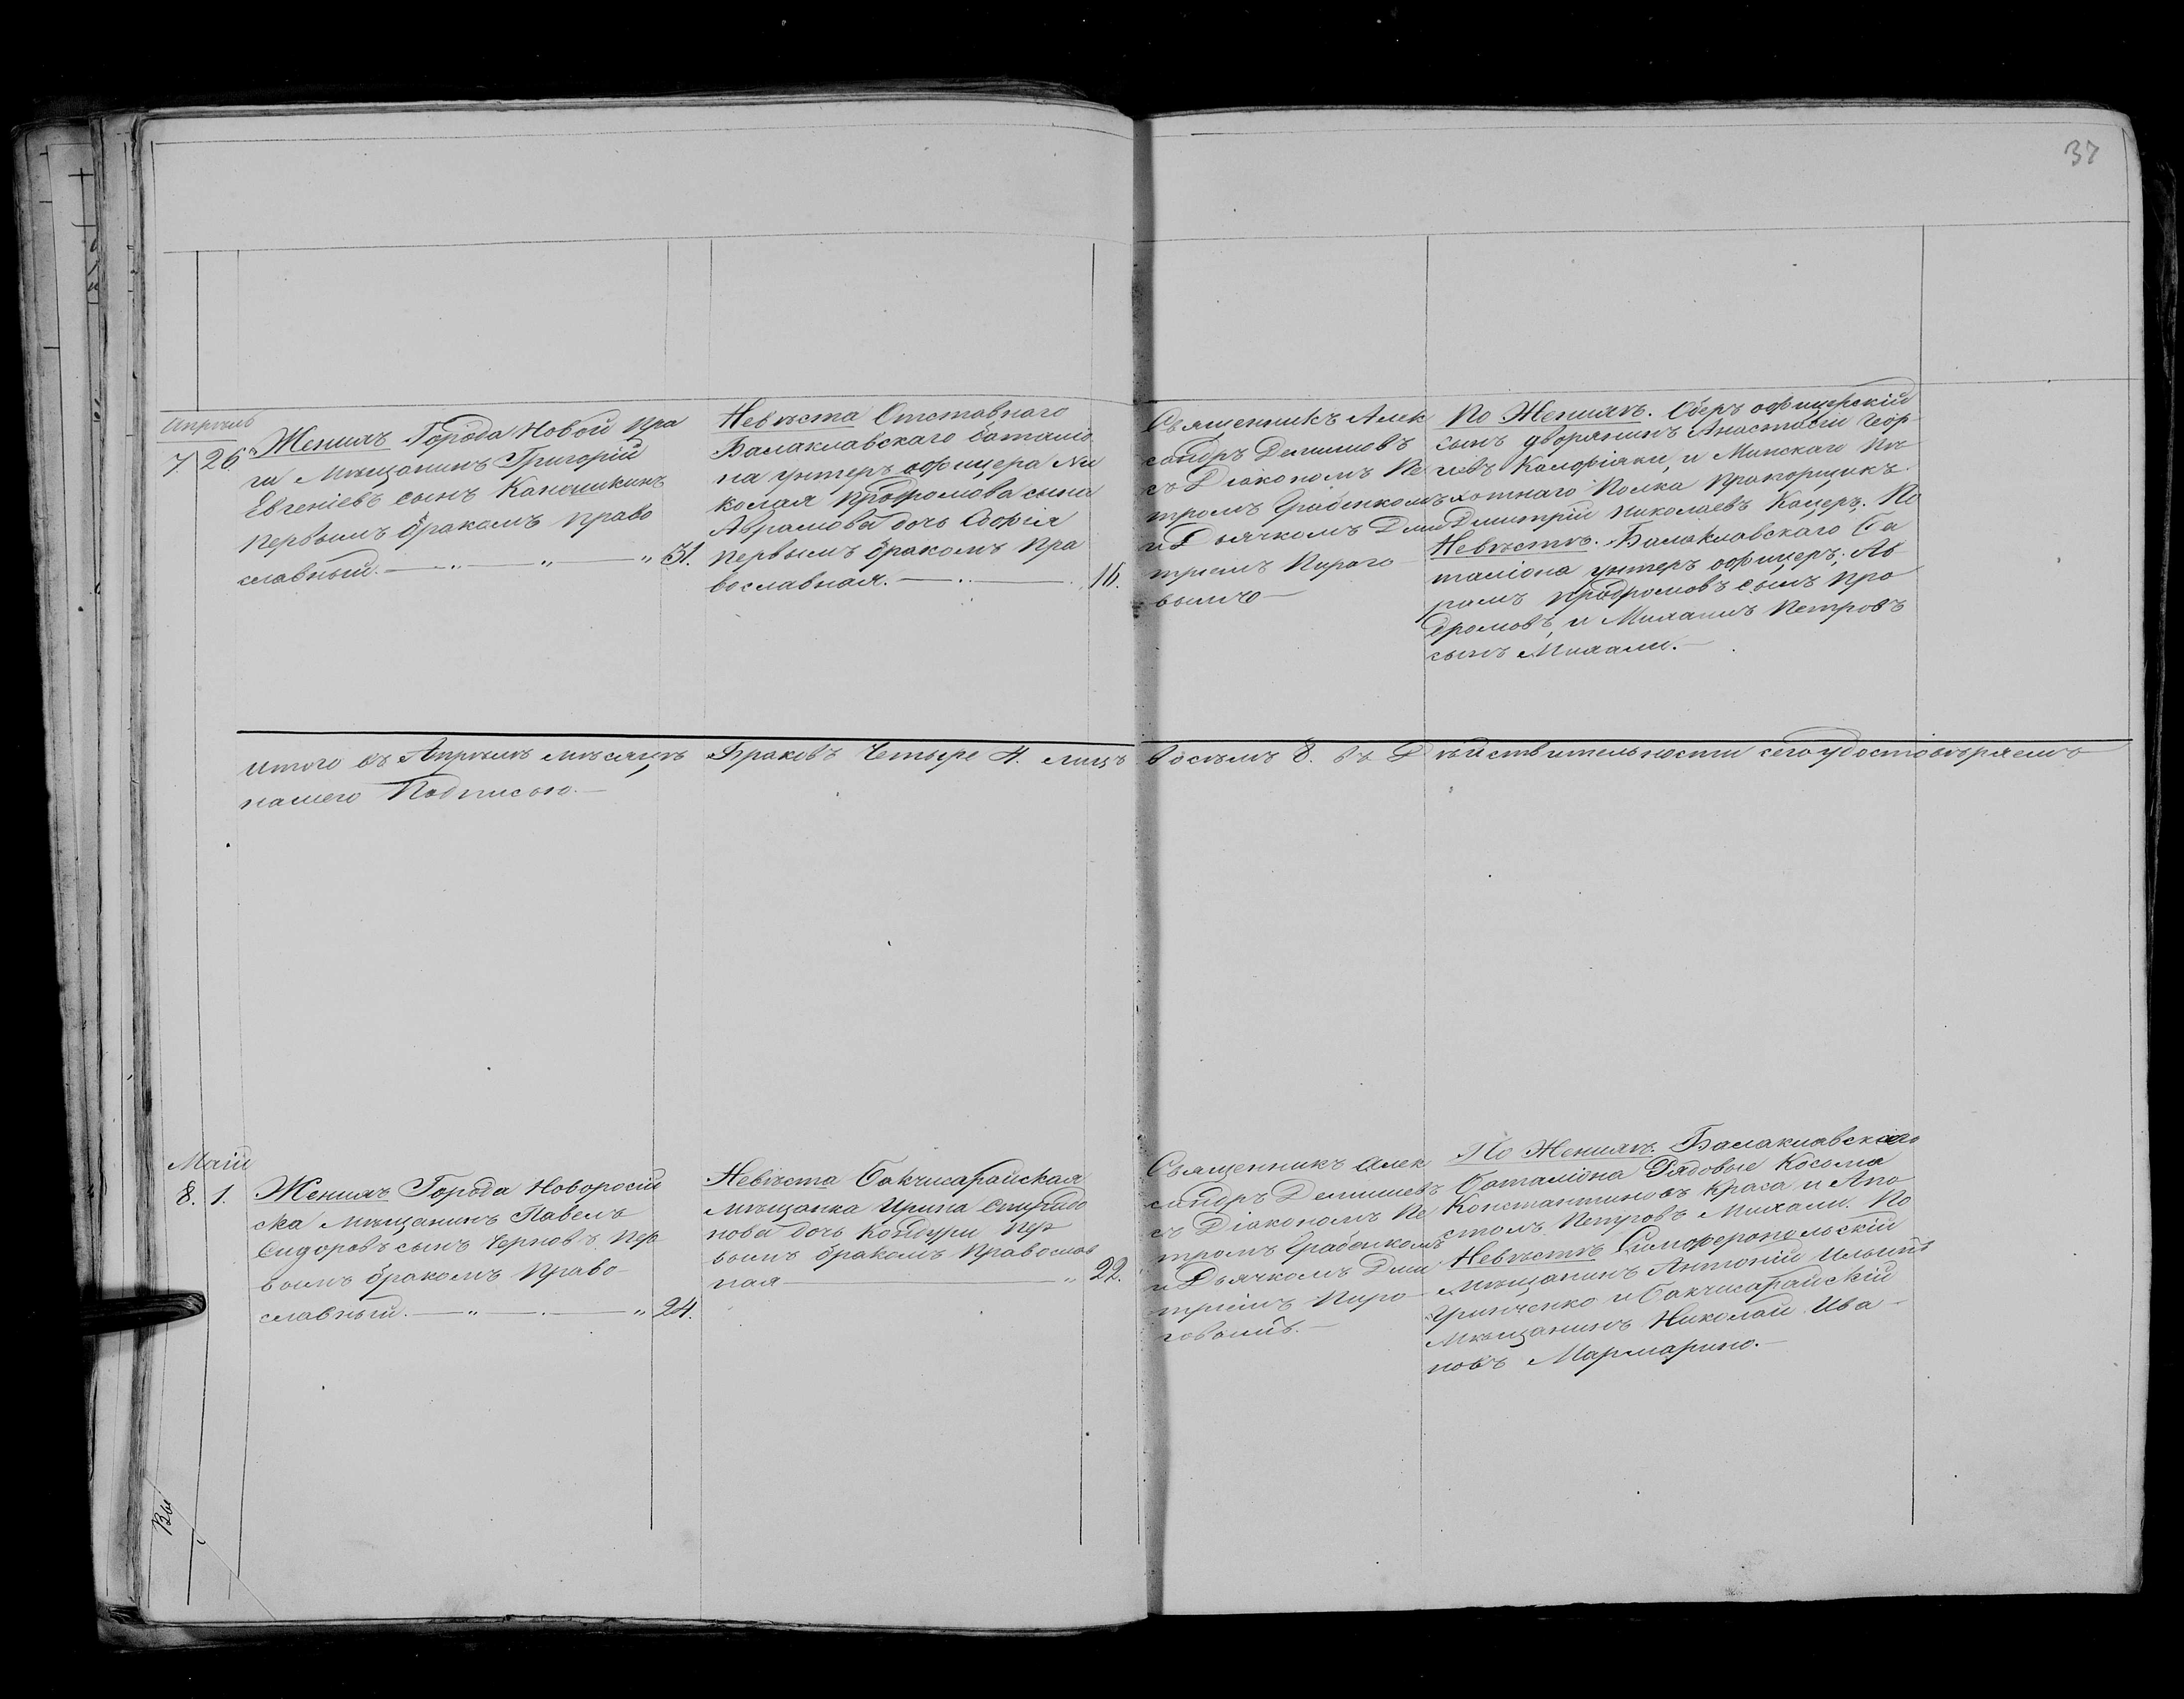 37
Апрѣль
7. 26.
Женихъ Города Новой Пра
ги Мѣщанинъ Григорій
Евгеніевъ сынъ Каношкинъ
первымъ бракомъ право
славный. 31.
Невѣста Отставнаго
Балаклавскаго баталіо
на унтеръ офицера Ни
колая Продромова сына
Аврамова дочь Софія
первымъ бракомъ Пра
вославная. 16.
Священникъ Алек
сандръ Демишевъ
съ Діакономъ Пе
тромъ Грабенкомъ
и Дьячкомъ Дми
тріемъ Пирого
вымъ
По Женихѣ. Оберъ офицерскій
сынъ дворянинъ Анастасій Геор
гіевъ Калофіяки, и Минскаго Пѣ
хотнаго Полка Прапорщикъ
Дмитрій Николаевъ Кацеръ. По
Невѣстѣ. Балаклавскаго Ба
таліона унтеръ офицеръ, Ав
рамъ Продромовъ сынъ Про
дромовъ, и Михаилъ Петровъ
сынъ Михали.
Итого въ Апрѣлѣ мѣсяцѣ Браковъ Четыре 4. лицъ Восѣмъ 8. въ Дѣйствительности сего удостовѣряемъ
нашего Подписью.
Маій
8. 1.
Женихъ Города Новоросій
ска мѣщанинъ Павелъ
Сидоровъ сынъ Черновъ пер
вымъ бракомъ Право
славный. 24.
Невѣста Бакчисарайская
мѣщанка Ирина Спиридо
нова дочь Кондури Пер
вымъ бракомъ Православ
ная 22.
Священникъ Алек
сандръ Демишевъ
съ Діакономъ Пе
тромъ Грабенкомъ
и Дьячкомъ Дми
тріемъ Пиро
говымъ.
По Женихѣ. Балаклавскаго
Баталіона Рядовые Косьма
Константиновъ Краса и Апо
столъ Петровъ Михали. По
Невѣстѣ Симферопольскій
Мѣщанинъ Антоній Ильинъ
Гринченко и Бакчисарайскій
Мѣщанинъ Николай Ива
новъ Мармарино.
Вы